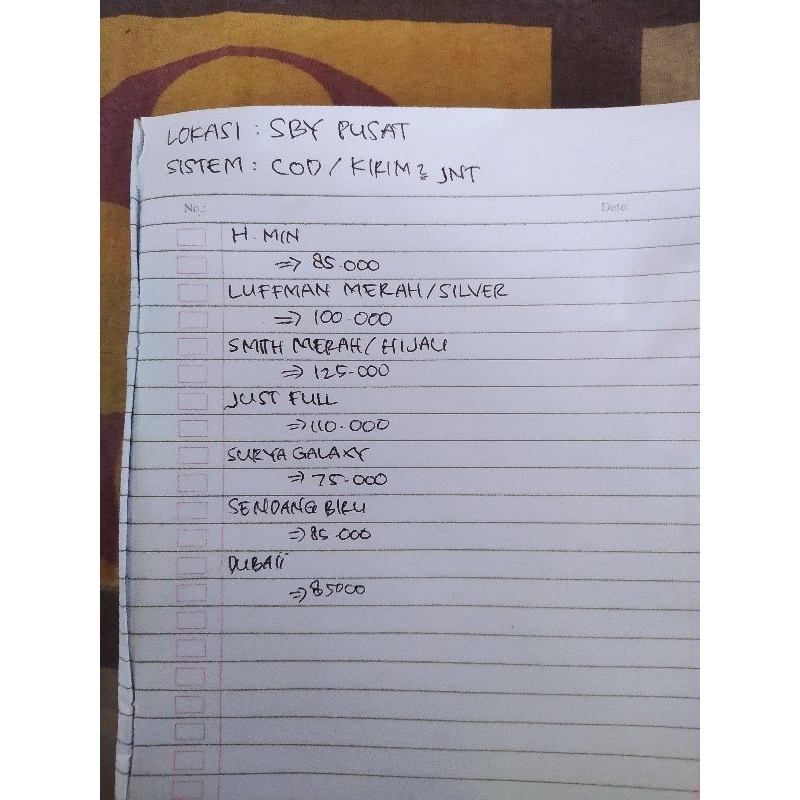 LOKASI : SBY PUSAT
SISTEM : COD / KIRIM2 JNT
No.: Date:
H. MIN
⇒ 85.000
LUFFMAN MERAH/SILVER
⇒ 100.000
SMITH MERAH/HIJAU
⇒ 125.000
JUST FULL
⇒ 110.000
SURYA GALAXY
⇒ 75.000
SENDANG BIRU
⇒ 85.000
DUBAII
⇒ 85000